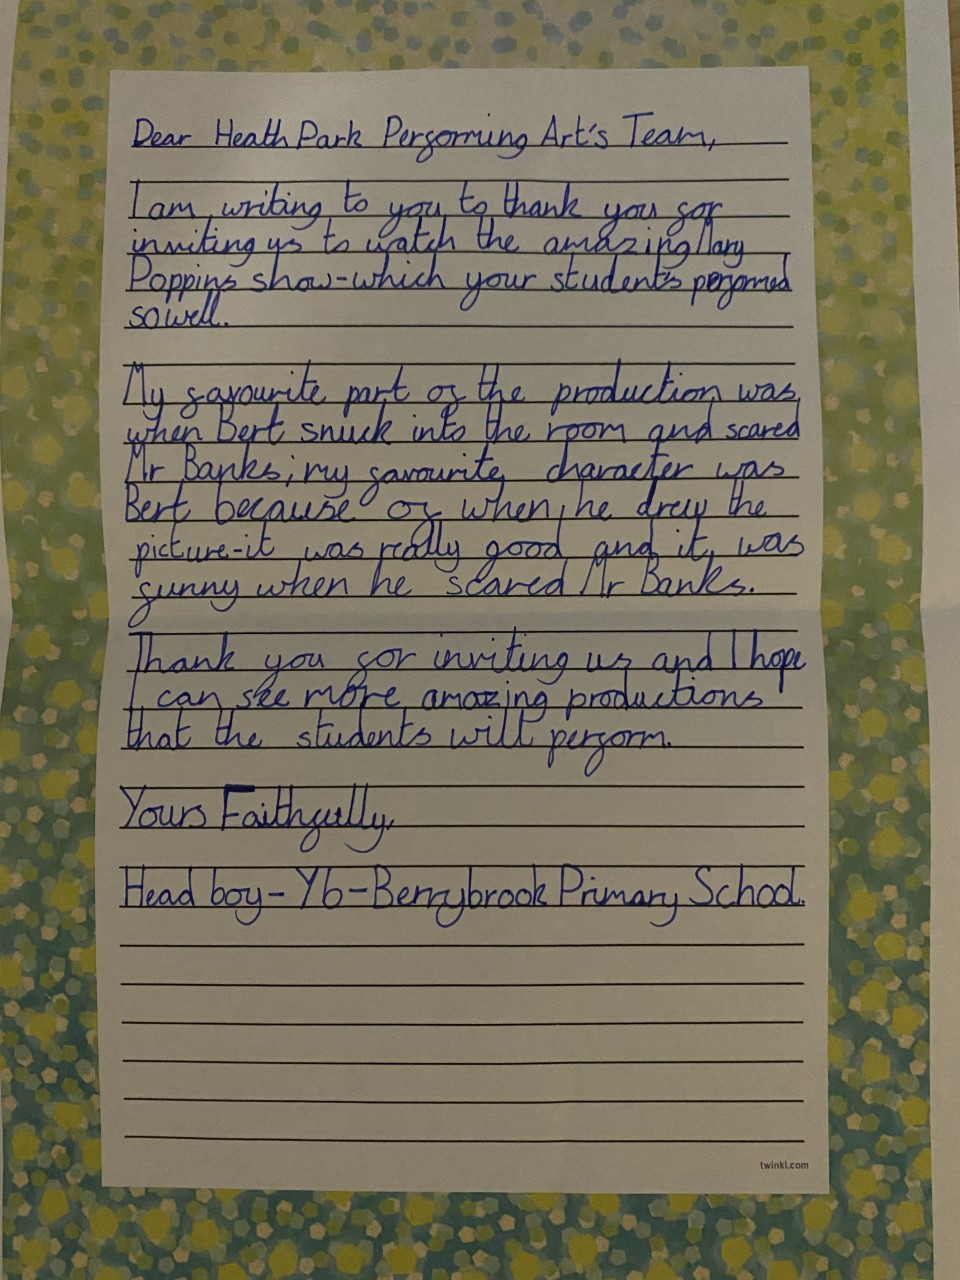 Dear Heath Park Performing Art's Team,
I am writing to you to thank you for
inviting us to watch the amazing Mary
Poppins show-which your student's performed
so well.
My favourite part of the production was
when Bert snuck into the room and scared
Mr Banks; my favourite character was
Bert because of when he drew the
picture-it was really good and it was
funny when he scared Mr Banks.
Thank you for inviting us and I hope
I can see more amazing productions
that the students will perform.
Yours Faithfully,
Head boy-Y6-Berrybrook Primary School.
twinkl.com